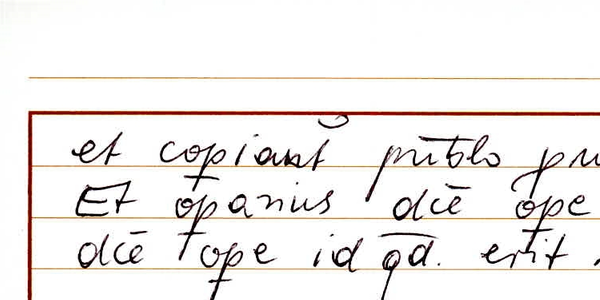 et copiant pntblo pu
Et opanius dcē ope
dcē ope id qd. erit